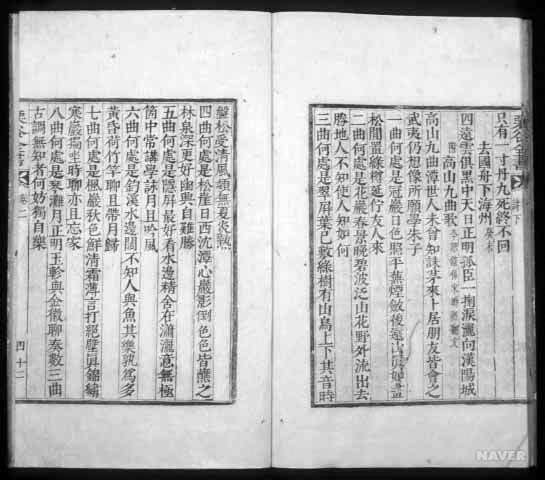 只有一寸丹九死終不回
去國舟下海州
四遠雲俱黑中天日正明孤臣一掬淚灑向漢陽城
高山九曲歌
高山九曲潭世人未曾知誅茅來卜居朋友皆會之
武夷仍想像所願學朱子
一曲何處是冠巖日色照平蕪煙斂後遠山眞如畫
松間置綠樽延佇友人來
二曲何處是花巖春景晚碧波泛山花野外流出去
勝地人不知使人知如何
三曲何處是翠屏葉已敷綠樹有山鳥上下其音時
盤松受淸風頓無夏炎熱
四曲何處是松崖日西沈潭心巖影倒色色皆蘸之
林泉深更好幽興自難勝
五曲何處是隱屏最好看水邊精舍在瀟灑意無極
箇中常講學詠月且吟風
六曲何處是釣溪水邊闊不知人與魚其樂孰爲多
黃昏荷竹竿聊且帶月歸
七曲何處是楓巖秋色鮮淸霜薄言打絕壁眞錦繡
寒巖獨坐時聊亦且忘家
八曲何處是琴灘月正明玉軫與金徽聊奏數三曲
古調無知者何妨獨自樂
卷二
四十二
NAVER